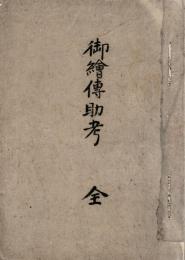 御繪傳助考 全